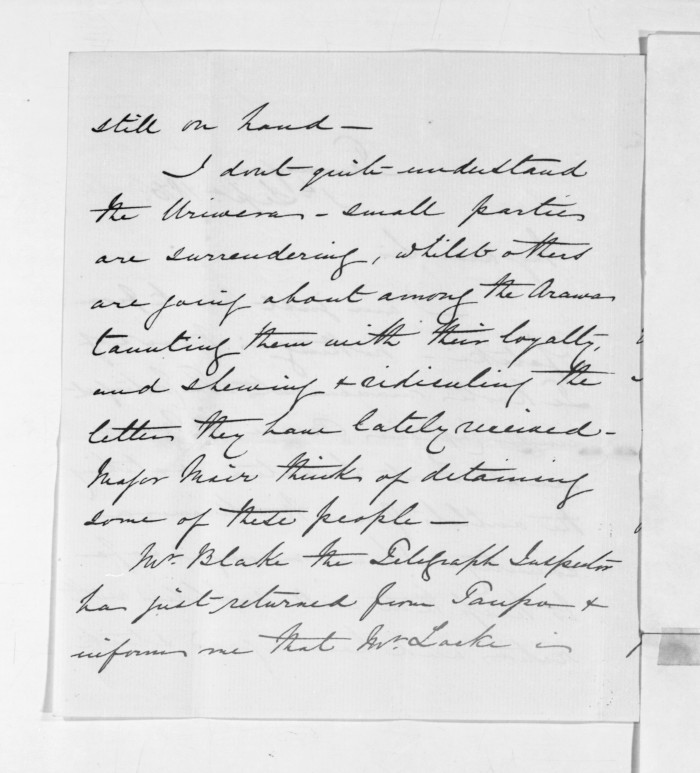 still on hand —
I dont quite understand
the Uriwera - small parties
are surrendering, whilst others
are going about among the Arawa
taunting them with their loyalty,
and shewing & ridiculing the
letters they have lately received -
Major Mair thinks of detaining
some of these people —
Mr. Blake the Telegraph Inspector
has just returned from Taupo &
informs me that Mr. Locke is